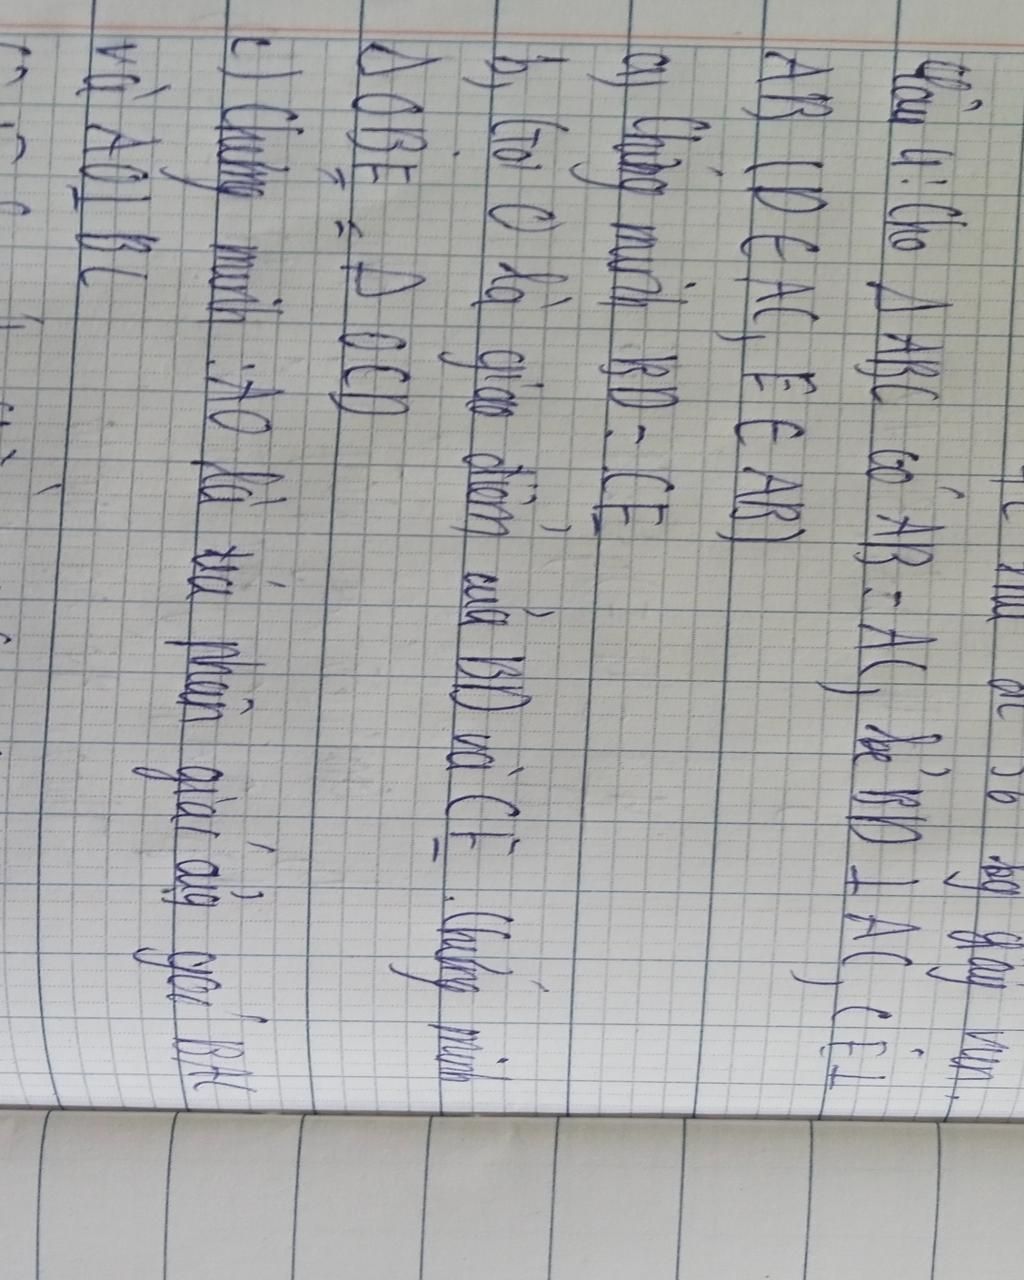 Câu 4: Cho Δ ABC có AB = AC, kẻ BD ⊥ AC, CE ⊥
AB (D ∈ AC, E ∈ AB)
a) Chứng minh BD = CE
b, Gọi O là giao điểm của BD và CE. Chứng minh
Δ OBE = Δ OCD
c) Chứng minh AO là tia phân giác của góc BAC
và AO ⊥ BC